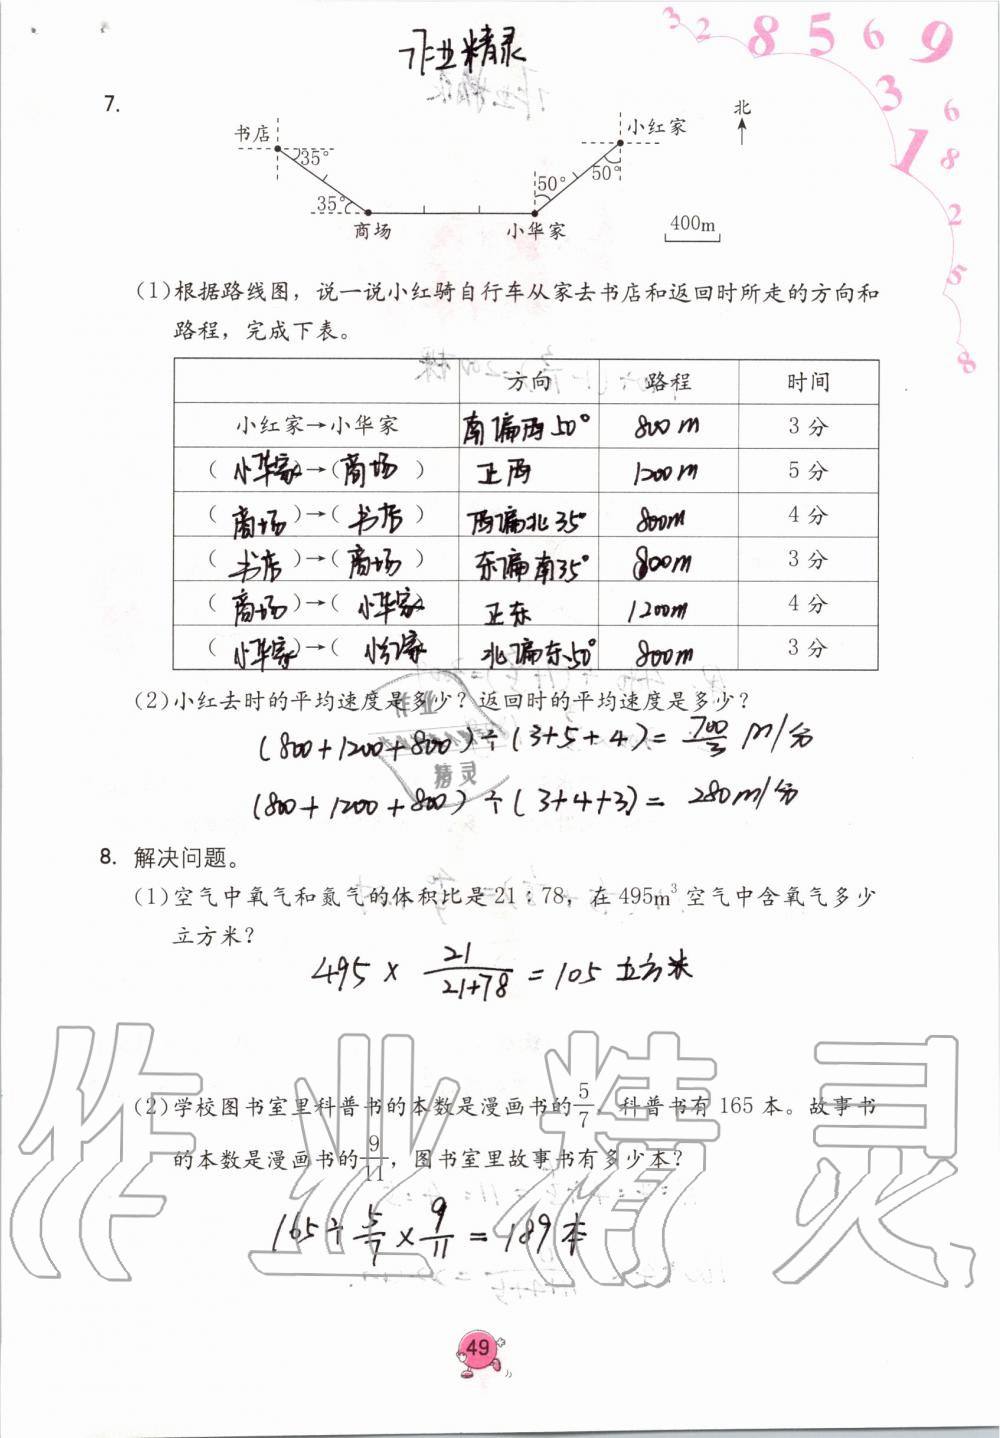 作业精灵
3 2 8 5 6 9
3 1 6 8 2 5 8
7.
北
书店
小红家
35°
50°
50°
35°
商场
小华家
400m
(1)根据路线图，说一说小红骑自行车从家去书店和返回时所走的方向和
路程，完成下表。
方向 路程 时间
小红家→小华家 南偏西50° 800m 3分
(小华家)→(商场) 正西 1200m 5分
(商场)→(书店) 西偏北35° 800m 4分
(书店)→(商场) 东偏南35° 800m 3分
(商场)→(小华家 正东 1200m 4分
(小华家)→(小红家 北偏东50° 800m 3分
(2)小红去时的平均速度是多少？返回时的平均速度是多少？
(800+1200+800)÷(3+5+4)= 700/3 m/分
(800+1200+800)÷(3+4+3)= 280m/分
作业
精灵
8. 解决问题。
(1)空气中氧气和氮气的体积比是21∶78，在495m³空气中含氧气多少
立方米？
495 × 21/(21+78) = 105 立方米
(2)学校图书室里科普书的本数是漫画书的5/7，科普书有165本。故事书
的本数是漫画书的9/11，图书室里故事书有多少本？
165÷5/7×9/11=189本
作业精灵
49